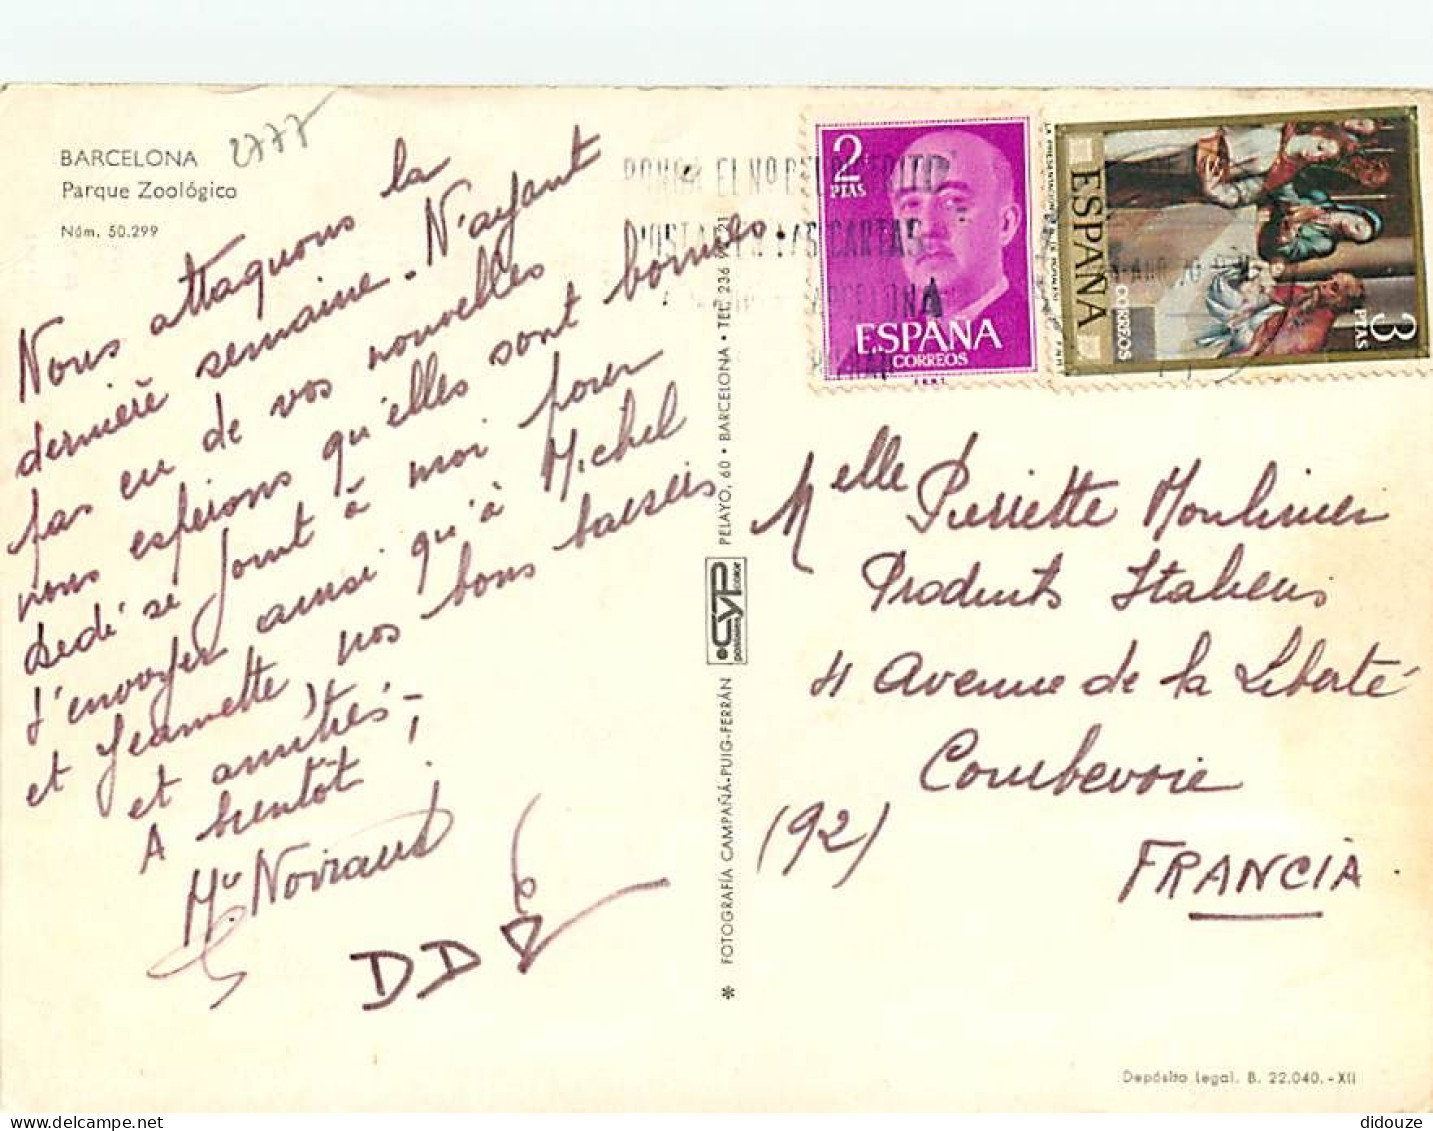 BARCELONA
Parque Zoológico
Núm. 50.299
2777
Nous attaquons la
dernière semaine - N'ayant
pas eu de vos nouvelles
nous espérons qu'elles sont bonnes.
Dédé se joint à moi pour
t'envoyer ainsi qu'à Michel
et Jeannette, nos bons baisers
et amitiés -
A bientôt !
DDD
* FOTOGRAFÍA CAMPAÑÁ-PUIG-FERRÁN
CYP
postales color
PELAYO, 60 • BARCELONA • TEL. 236
21
2
PTAS
ESPAÑA
CORREOS
F.N.M.T.
ESPAÑA
CORREOS
3
PTAS
PONGA EL Nº DEL DISTRITO
POSTAL EN LAS CARTAS
BARCELONA
Melle Pierrette Moulinier
Produits Italiens
4 Avenue de la Liberté
Courbevoie
(92)
FRANCIA
Depósito Legal. B. 22.040.-XII
didouze